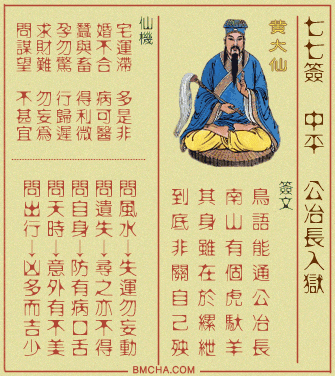 七七簽 中平 公冶長入獄
黃大仙
簽文
鳥語能通公冶長
南山有個虎馱羊
其身雖在於縲紲
到底非關自己殃
仙機
宅運滯 多是非
婚不合 病可醫
蠶與畜 得利微
孕勿驚 行歸遲
求財難 勿妄為
問謀望 不甚宜
問風水→失運勿妄動
問遺失→尋之亦不得
問自身→防有病口舌
問天時→意外有不美
問出行→凶多而吉少
BMCHA.COM